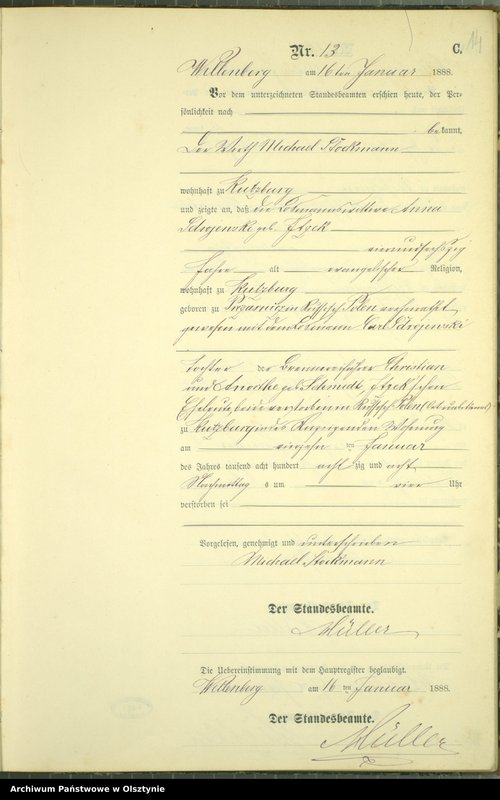 Nr. 13
C.
14
Willenberg am 16ten Januar 1888.
Vor dem unterzeichneten Standesbeamten erschien heute, der Per-
sönlichkeit nach
bekannt,
Der Wirth Michael Stockmann
wohnhaft zu Kutzburg
und zeigte an, daß die Losmannswittwe Anna
geb.
vierundsechszig
Jahre alt evangelischer Religion,
wohnhaft zu Kutzburg
geboren zu in Russisch Polen verheirathet
gewesen mit dem Losmann Carl
Tochter der Christian
und geb. Schmidt,
Eheleute, beide verstorben in Russisch Polen (Ort unbekannt)
zu Kutzburg in des Anzeigenden Wohnung
am vierzehn ten Januar
des Jahres tausend acht hundert acht zig und acht
Nachmittag s um vier Uhr
verstorben sei
Vorgelesen, genehmigt und unterschrieben
Michael Stockmann
Der Standesbeamte.
Müller
Die Uebereinstimmung mit dem Hauptregister beglaubigt.
Willenberg am 16 ten Januar 1888.
Der Standesbeamte.
Müller
Archiwum Państwowe w Olsztynie